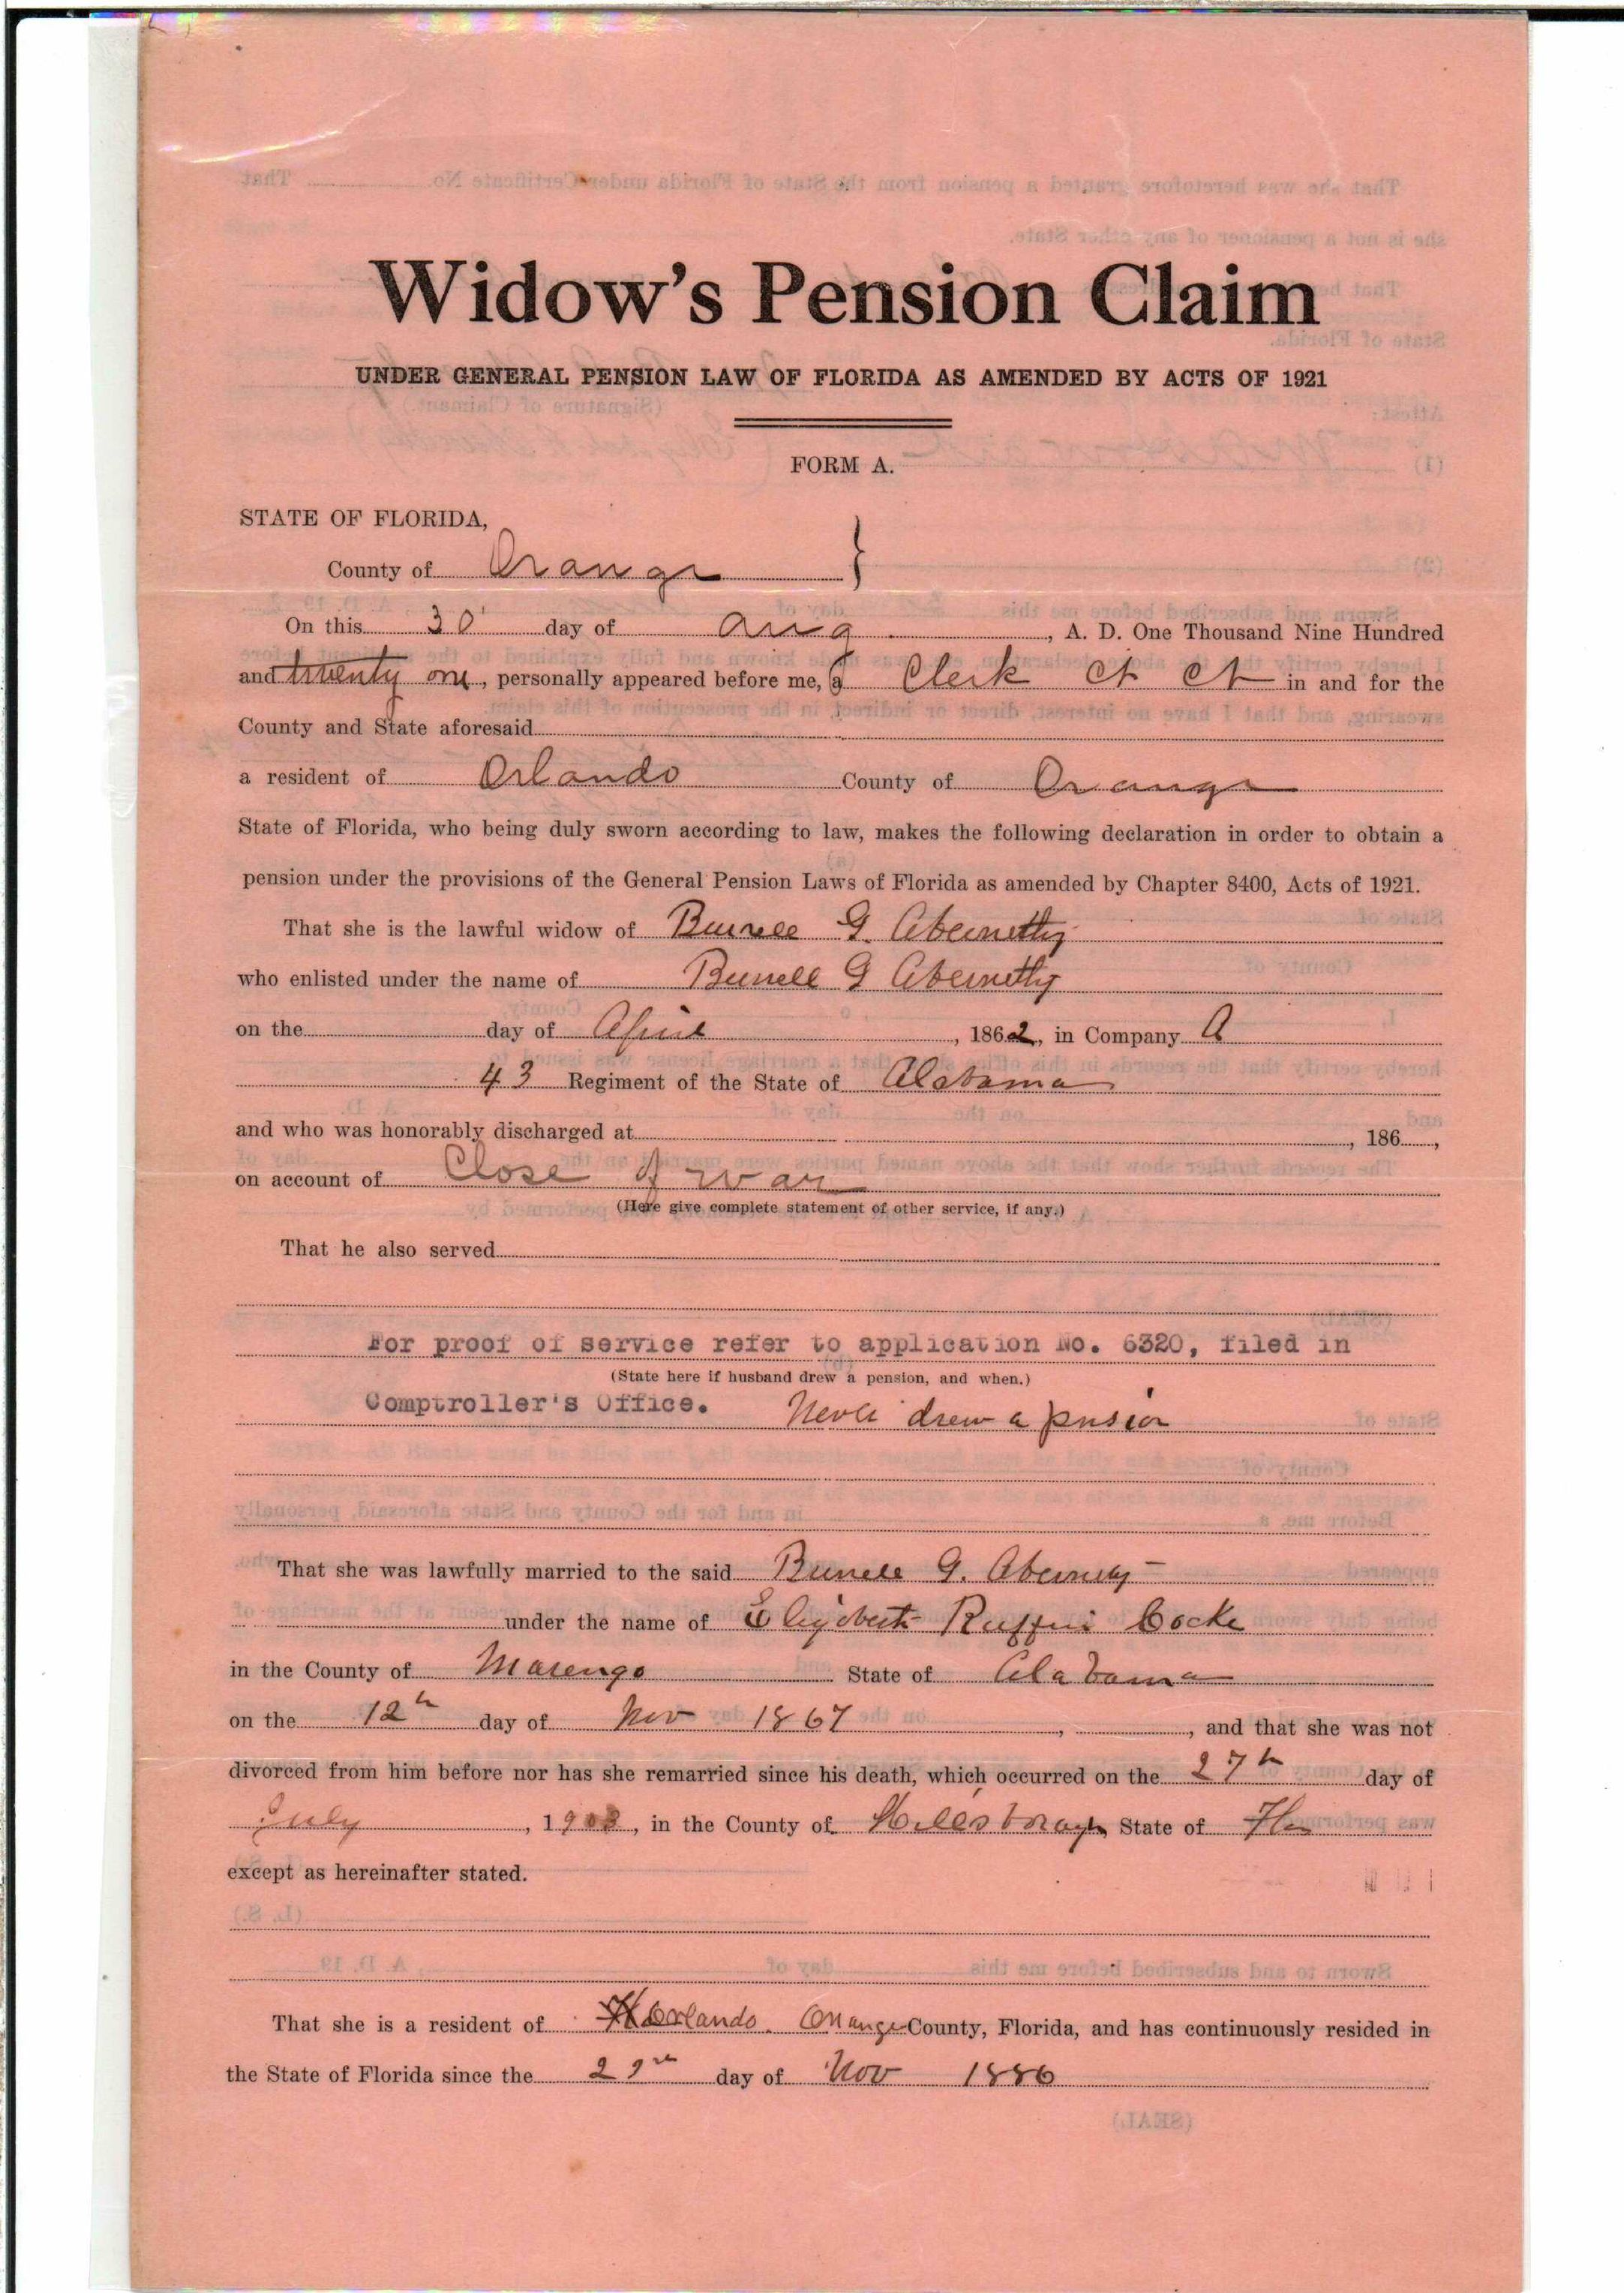 Widow's Pension Claim
UNDER GENERAL PENSION LAW OF FLORIDA AS AMENDED BY ACTS OF 1921
FORM A.
STATE OF FLORIDA,
County of Orange }
On this 30 day of Aug., A. D. One Thousand Nine Hundred
and twenty one, personally appeared before me, a Clerk Ct Ct in and for the
County and State aforesaid
a resident of Orlando County of Orange
State of Florida, who being duly sworn according to law, makes the following declaration in order to obtain a
pension under the provisions of the General Pension Laws of Florida as amended by Chapter 8400, Acts of 1921.
That she is the lawful widow of Burrell G. Abernethy
who enlisted under the name of Burrell G Abernethy
on the day of April, 1862, in Company A
43 Regiment of the State of Alabama
and who was honorably discharged at, 186,
on account of Close of war
(Here give complete statement of other service, if any.)
That he also served
For proof of service refer to application No. 6320, filed in
(State here if husband drew a pension, and when.)
Comptroller's Office. Never drew a pension
That she was lawfully married to the said Burrell G. Abernethy
under the name of Elizabeth Ruffin Cocke
in the County of Marengo State of Alabama
on the 12th day of Nov 1867, , and that she was not
divorced from him before nor has she remarried since his death, which occurred on the 27th day of
July, 190, in the County of Hillsborough State of Fla
except as hereinafter stated.
That she is a resident of Orlando. Orange County, Florida, and has continuously resided in
the State of Florida since the day of Nov 1886